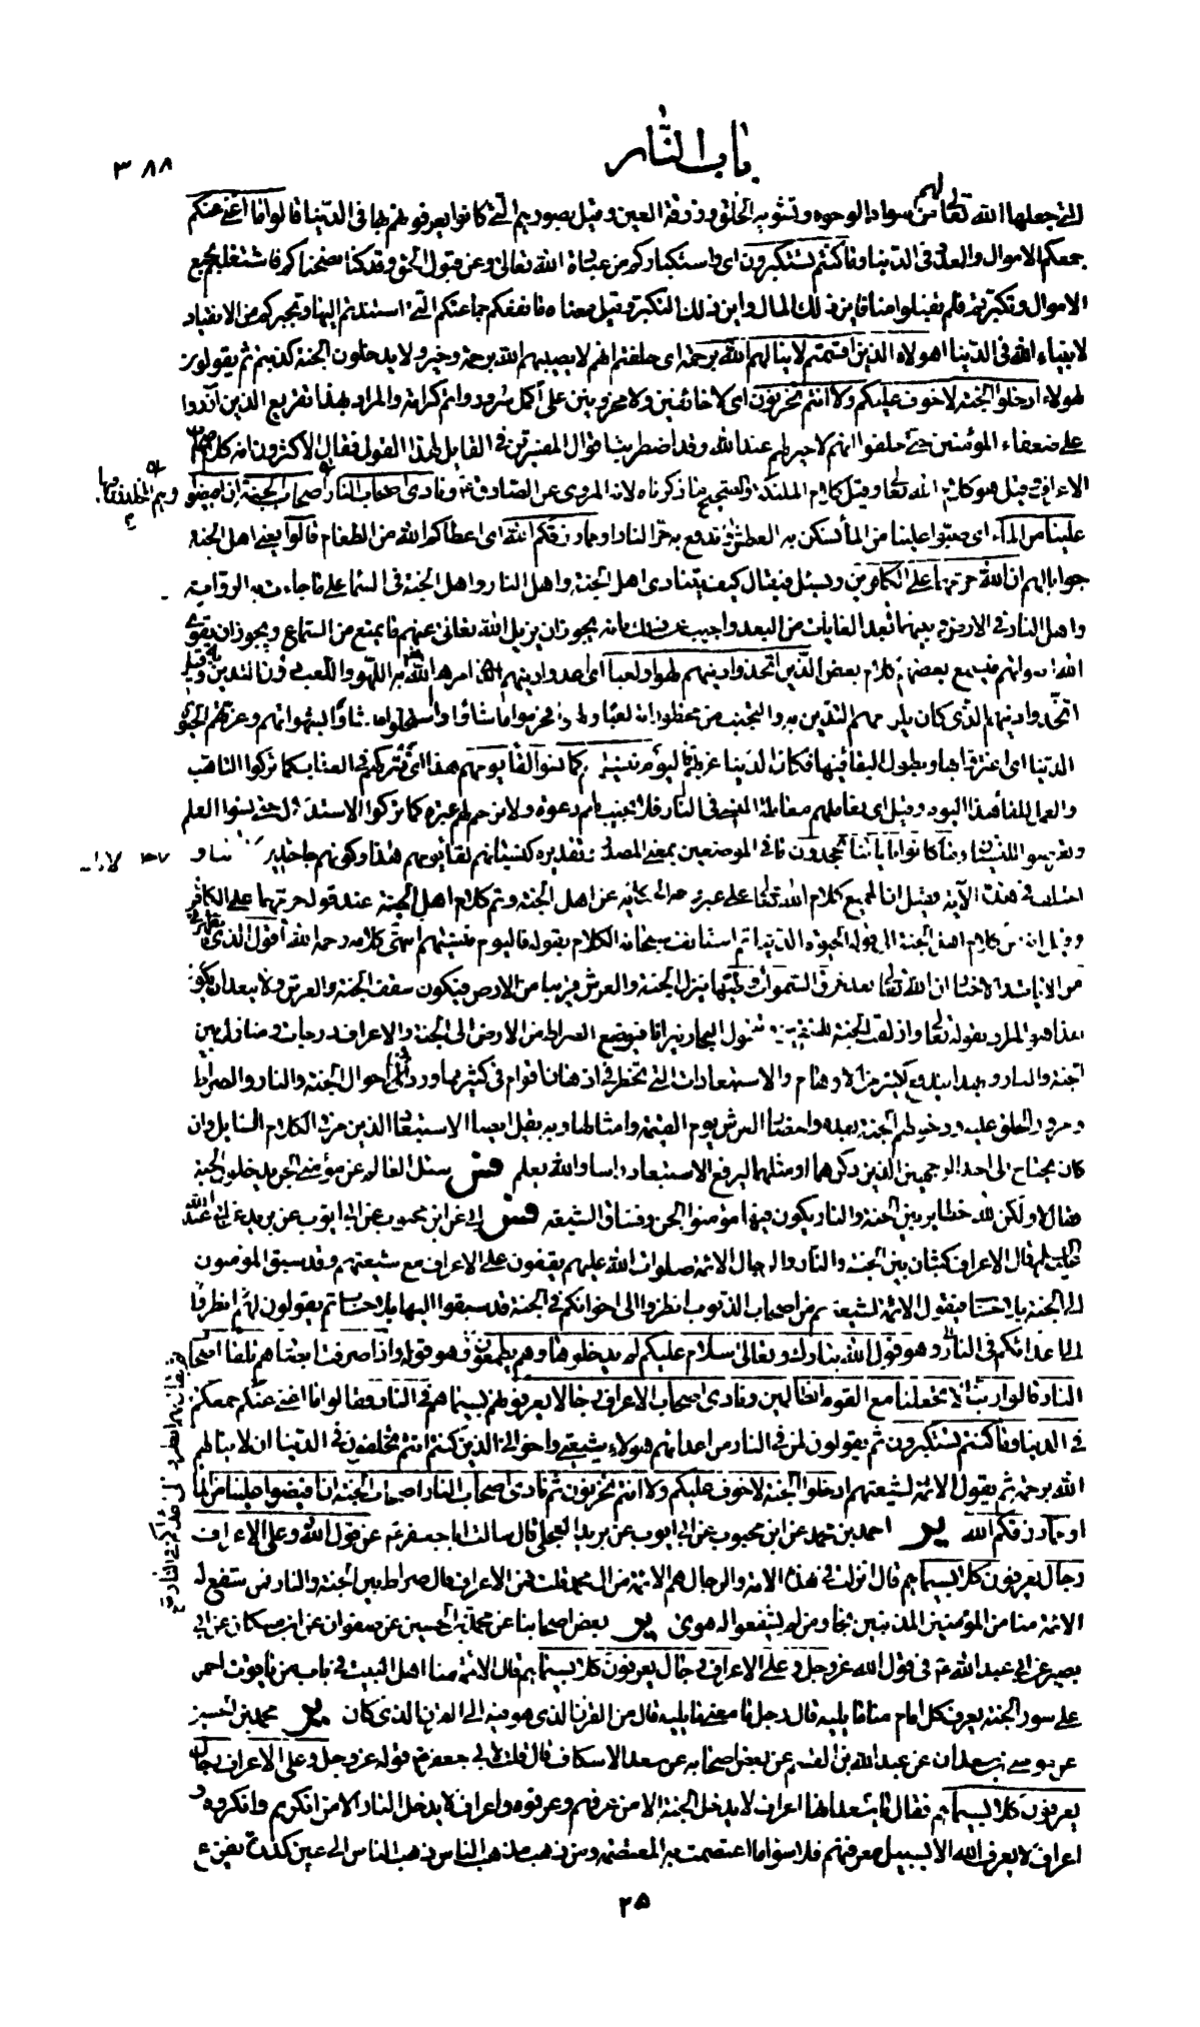 باب النار
٣٨٨
التي جعلها الله تعالى لهم من سواد الوجوه وتشويه الخلق وزرقة العين وقيل بصورهم التي كانوا يعرفونهم بها في الدنيا قالوا ما اغنى عنكم
جمعكم الاموال والعدد في الدنيا وما كنتم تستكبرون اي واستكباركم من عبادة الله تعالى وعن قبول الحق وقد كنا نصحناكم فاشتغلتم بجمع
الاموال وتكبرتم فلم تقبلوا منا فاين ذلك المال واين ذلك التكبر وقيل معناه ما نفعكم جماعتكم التي استندتم اليها وتجبركم عن الانقياد
لانبياء الله في الدنيا اهولاء الذين اقسمتم لا ينالهم الله برحمة اي حلفتم انهم لا يصيبهم الله برحمة وخير ولا يدخلون الجنة كذبتم ثم يقولون
لهولاء ادخلوا الجنة لا خوف عليكم ولا انتم تحزنون اي لا خائفين ولا محزونين على اكمل سرور واتم كرامة والمراد بهذا تقريع الذين ازدروا
على ضعفاء المؤمنين حتى حلفوا انهم لا خير لهم عند الله وقد اضطربت اقوال المفسرين في القايل لهذا القول فقال الاكثرون انه كلام اصحاب
الاعراف وقيل هو كلام الله تعالى وقيل كلام الملئكة والصحيح ما ذكرناه لانه المروي عن الصادق ع ونادى اصحاب النار اصحاب الجنة ان افيضوا
علينا من الماء اي صبوا علينا من الماء نسكن به العطش او ندفع به حر النار او مما رزقكم الله اي اعطاكم الله من الطعام قالوا يعني اهل الجنة
جوابا لهم ان الله حرمهما على الكافرين ويسئل فيقال كيف يتنادى اهل الجنة واهل النار واهل الجنة في السماء على ما جاءت به الرواية
واهل النار في الارض وبينهما ابعد الغايات من البعد واجيب عن ذلك بانه يجوز ان يزيل الله تعالى عنهم ما يمنع من السماع ويجوز ان يقوي
الله اصواتهم فيسمع بعضهم كلام بعض الذين اتخذوا دينهم لهوا ولعبا اي اعدوا دينهم الذي امرهم الله به اللهو واللعب دون التدين به وقيل
اتخذوا دينهم الذي كان يلزمهم التدين به والتجنب من محظوراته لعبا ولهوا فحرموا ما شاؤا واستحلوا ما شاؤا بشهواتهم وغرتهم الحيوة
الدنيا اي اغتروا بها وبطول البقاء فيها فكان الدنيا غرتهم فاليوم ننسيهم كما نسوا لقاء يومهم هذا اي نتركهم في العذاب كما تركوا التاهب
والعمل للقاء هذا اليوم وقيل اي نعاملهم معاملة المنسي في النار فلا نجيب لهم دعوة ولا نرحم لهم عبرة كما تركوا الاستدلال حتى نسوا العلم
وتعرضوا للنسيان وما كانوا باياتنا يجحدون ما في الموضعين بمعنى المصدر وتقديره كنسيانهم لقاء يومهم هذا وكونهم جاحدين
اختلف في هذه الآية فقيل ان الجميع كلام الله تعالى على غير حكاية عن اهل الجنة وتم كلام اهل الجنة عند قوله حرمهما على الكافرين
وقيل انه من كلام اهل الجنة الى قوله الحيوة الدنيا ثم استانف سبحانه الكلام بقوله فاليوم ننسيهم انتهى كلامه رحمه الله اقول الذي
من الآيات والاخبار ان الله تعالى بعد خرق السموات وطيها ينزل الجنة والعرش قريبا من الارض فيكون سقف الجنة العرش ولا يبعد ان يكون
هذا هو المراد بقوله تعالى وازلفت الجنة للمتقين وتحول البحار نيرانا فيوضع الصراط من الارض الى الجنة والاعراف درجات ومنازل بين
الجنة والنار وبهذا يندفع كثير من الاوهام والاستبعادات التي تخطر في اذهان اقوام في كثير مما ورد في احوال الجنة والنار والصراط
ومرور الخلق عليه ودخولهم الجنة بعده واحضار العرش يوم القيمة وامثالها وبه يقل ايضا الاستبعاد الذي مر في الكلام السابق وان
كان يحتاج الى احد الوجهين الذين ذكرهما او مثلهما لرفع الاستبعاد راسا والله يعلم فس سئل العالم عن مؤمني الجن يدخلون الجنة
فقال لا ولكن لله حظاير بين الجنة والنار يكون فيها مؤمنوا الجن وفساق الشيعة فس ابي عن ابن محبوب عن ابي ايوب عن بريد عن ابي عبد الله
عليه السلام قال الاعراف كثبان بين الجنة والنار والرجال الائمة صلوات الله عليهم يقفون على الاعراف مع شيعتهم وقد سبق المؤمنون
الى الجنة بلا حساب فيقول الائمة لشيعتهم من اصحاب الذنوب انظروا الى اخوانكم في الجنة قد سبقوا اليها بلا حساب ثم يقولون لهم انظروا
الى اعدائكم في النار وهو قول الله تبارك وتعالى سلام عليكم لم يدخلوها وهم يطمعون وهو قوله واذا صرفت ابصارهم تلقاء اصحاب
النار قالوا ربنا لا تجعلنا مع القوم الظالمين ونادى اصحاب الاعراف رجالا يعرفونهم بسيماهم في النار فقالوا ما اغنى عنكم جمعكم
في الدنيا وما كنتم تستكبرون ثم يقولون لمن في النار من اعدائهم هولاء شيعتي واخواني الذين كنتم انتم تحلفون في الدنيا ان لا ينالهم
الله برحمة ثم يقول الائمة لشيعتهم ادخلوا الجنة لا خوف عليكم ولا انتم تحزنون ثم نادى اصحاب النار اصحاب الجنة ان افيضوا علينا من الماء
او مما رزقكم الله ير احمد بن محمد عن ابن محبوب عن ابي ايوب عن بريد العجلي قال سالت ابا جعفر ع عن قول الله وعلى الاعراف
رجال يعرفون كلا بسيماهم قال انزلت في هذه الامة والرجال هم الائمة من ال محمد قلت فما الاعراف قال صراط بين الجنة والنار فمن شفع له
الائمة منا من المؤمنين المذنبين نجا ومن لم يشفعوا له هوى ير بعض اصحابنا عن محمد بن الحسين عن صفوان عن ابن مسكان عن ابي
بصير عن ابي عبد الله ع في قول الله عز وجل وعلى الاعراف رجال يعرفون كلا بسيماهم قال الائمة منا اهل البيت في باب من ياقوت احمر
على سور الجنة يعرف كل امام منا ما يليه قال رجل ما معنى ما يليه قال من القرن الذي هو فيه الى القرن الذي كان ير محمد بن الحسين
عن موسى بن سعدان عن عبد الله بن القسم عن بعض اصحابه عن سعد الاسكاف قال قلت لابي جعفر ع قوله عز وجل وعلى الاعراف رجال
يعرفون كلا بسيماهم فقال يا سعد انها اعراف لا يدخل الجنة الا من عرفهم وعرفوه واعراف لا يدخل النار الا من انكرهم وانكروه و
اعراف لا يعرف الله الا بسبيل معرفتهم فلا سواء ما اعتصمت به المعتصمة ومن ذهب مذهب الناس ذهب الناس الى عين كدرة يفرغ
٢٥